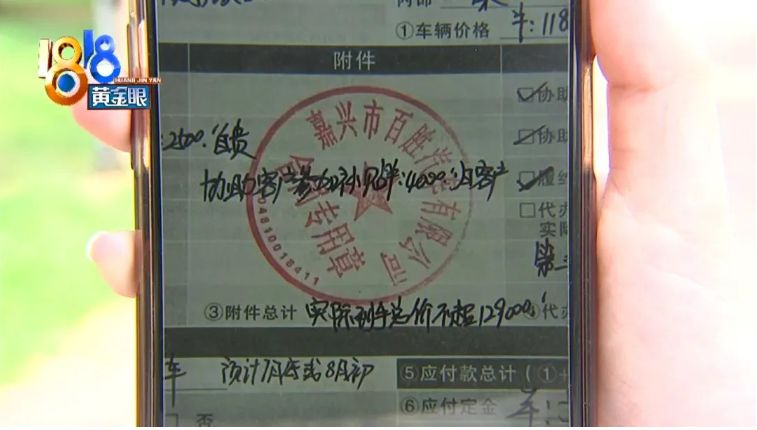 1818
HUANG JIN YAN
黄金眼
①车辆价格 118
附件
协助
2500.自费
协助
协助客户参加补贴 4000.归客户
履约
嘉兴市百胜汽车有限公司
合同专用章
04810018411
代办
实际
第三
③附件总计 实际到手总价不超129000.
代办
车 预计7月底或8月初
⑤应付款总计(①+
否
⑥应付定金